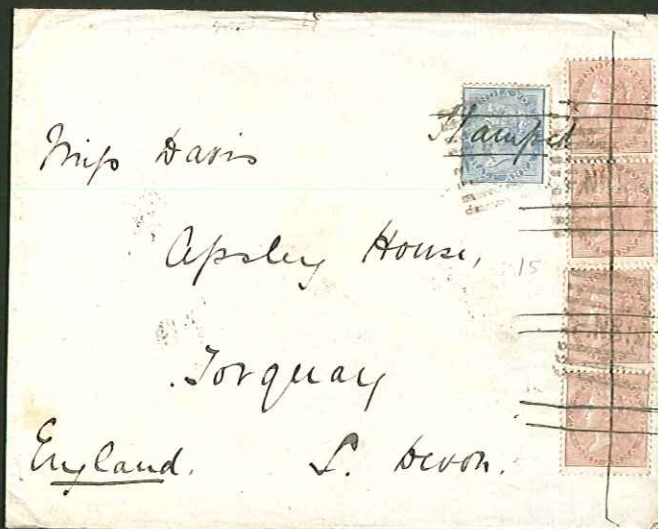 Miss Davis
Apsley House,
15
Torquay
England. S. Devon.